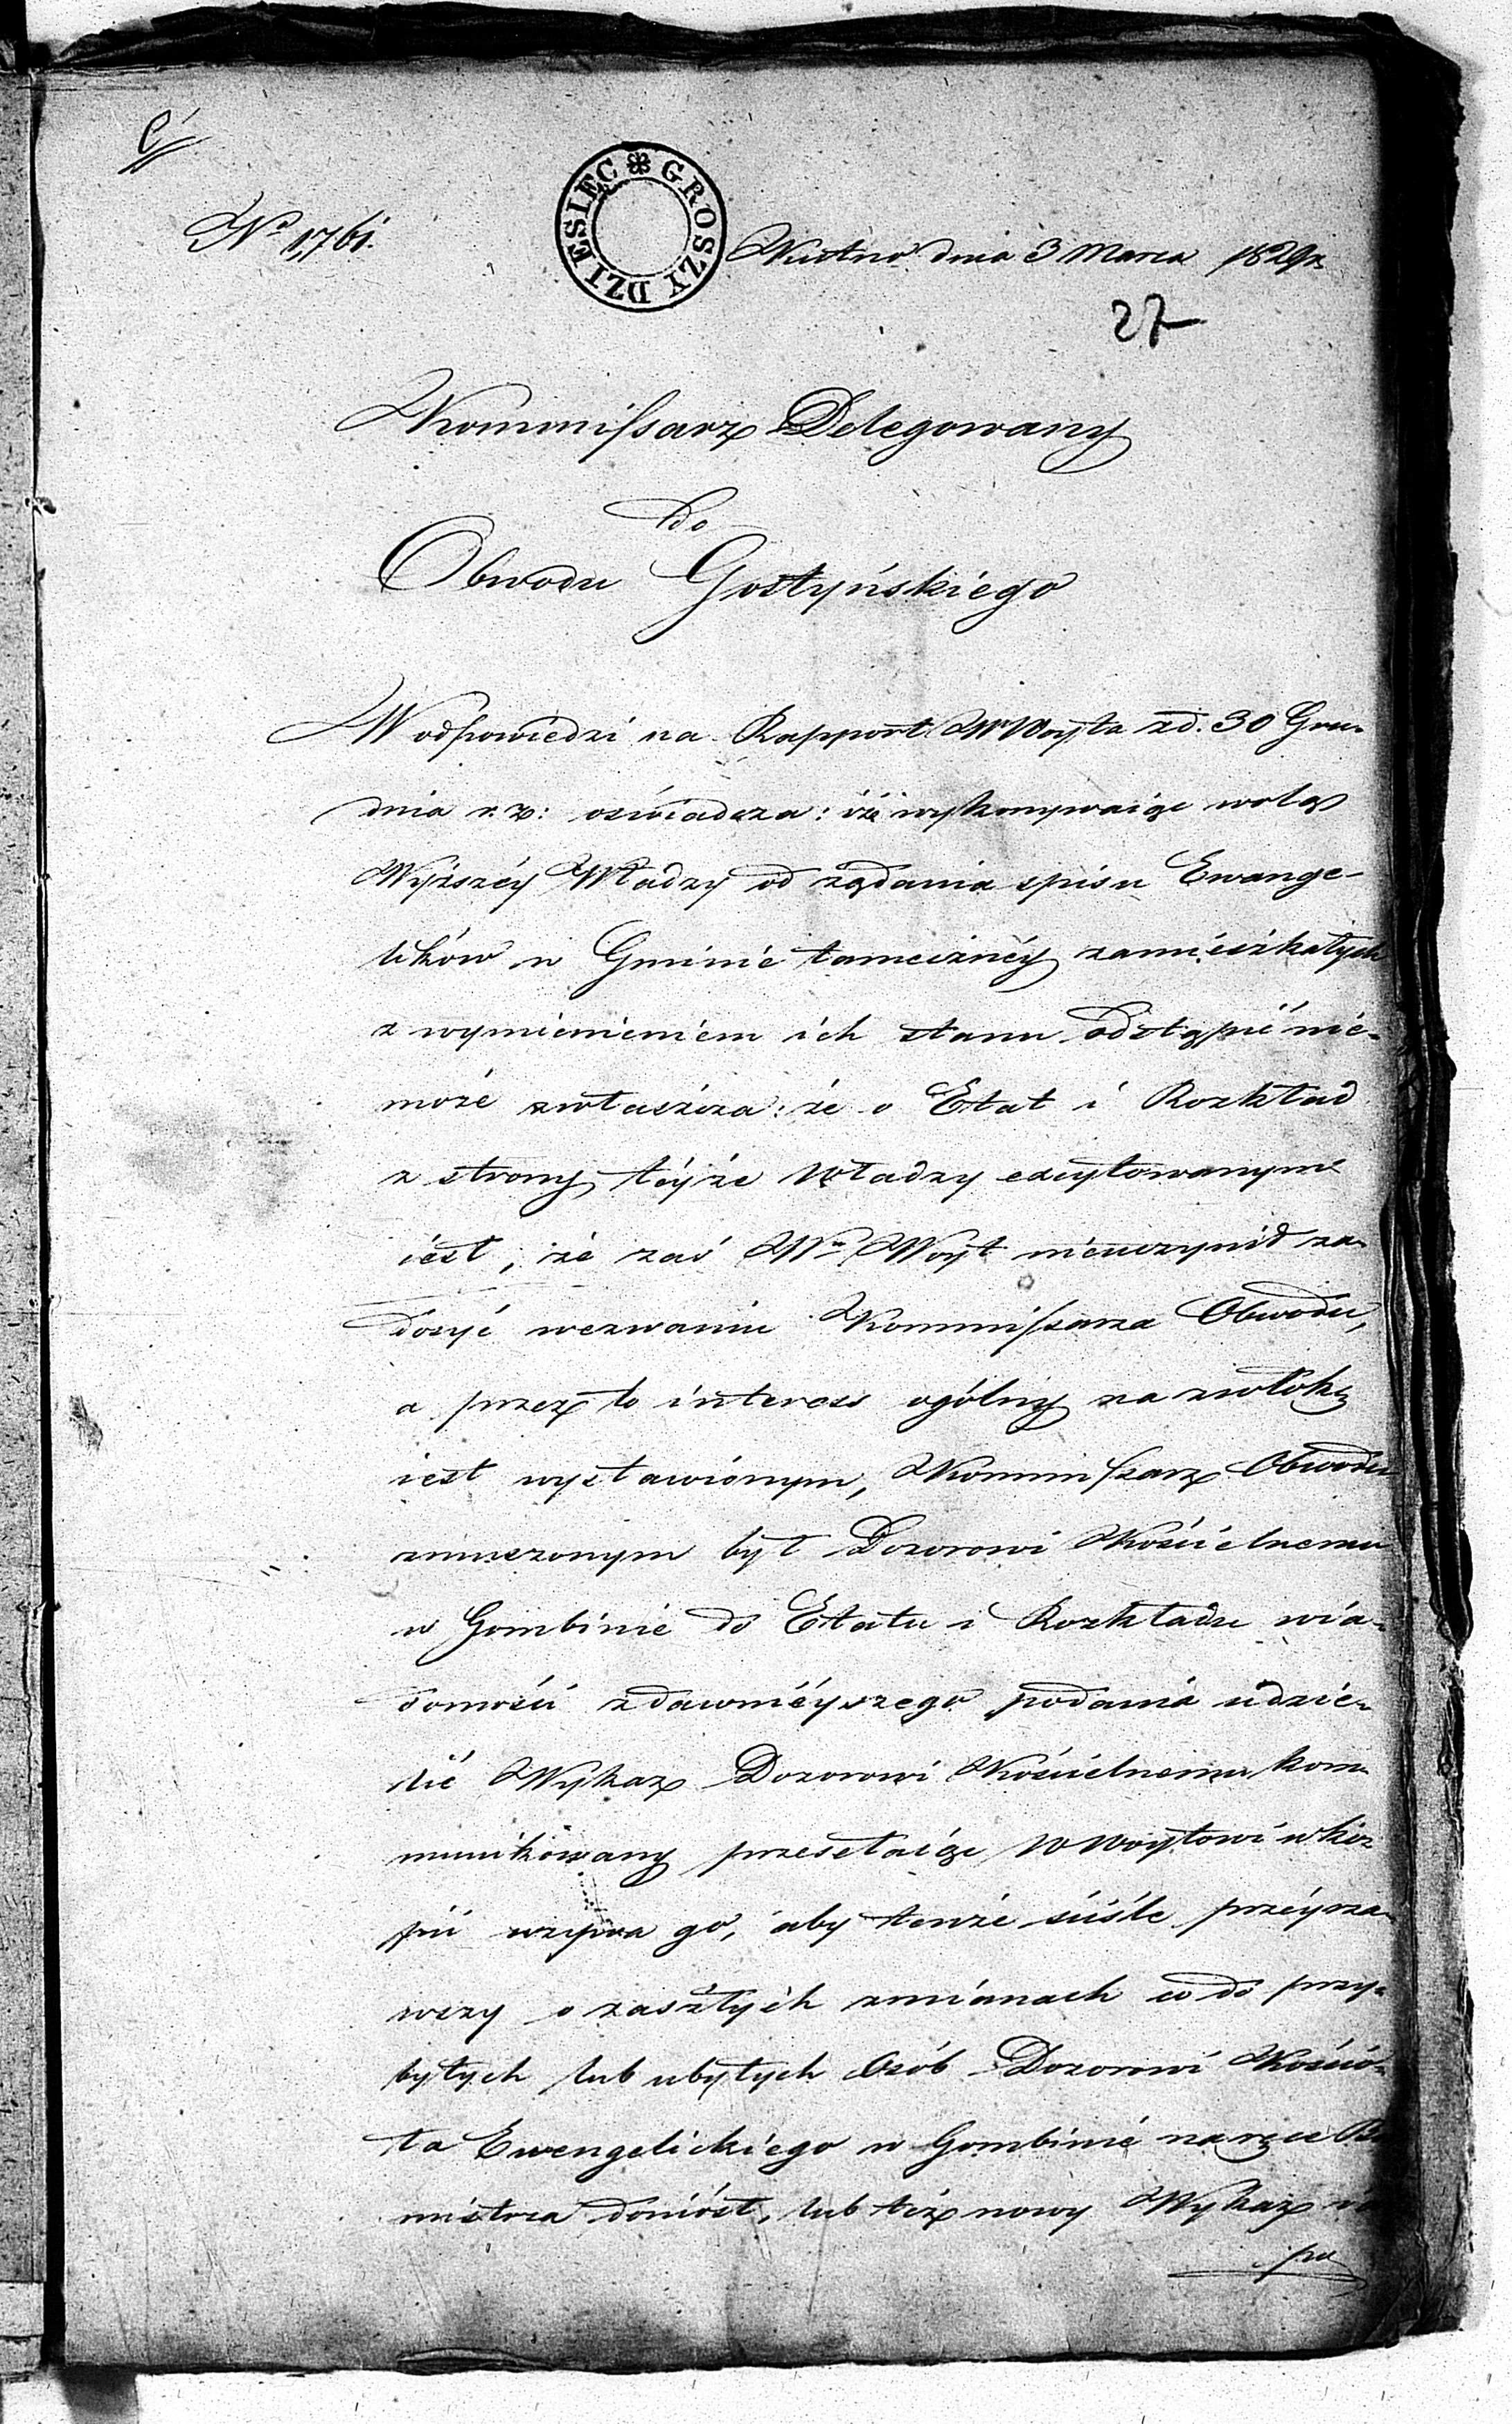 No 1,761.
DZIESIĘC GROSZY
Kutno dnia 3 Marca 1829 r.
27
Kommissarz Delegowany
do
Obwodu Gostyńskiego
W odpowiedzi na Rapport W Woyta z d. 30 Gru-
dnia r. z: oświadcza: iż wykonywaiąc wolą
Wyższéy Władzy od żądania spisu Ewange-
lików w Gminie tamecznéy zamieszkałych
z wymienieniem ich stanu odstąpić nie-
może zwłaszcza: że o Etat i Rozkład
z strony téyże Władzy excytowanym
iest, że zaś Wny Woyt nieuczynił za-
dosyć wezwaniu Kommissarza Obwodu,
a przez to interess ogólny na zwłokę
iest wystawionym, Kommissarz Obwodu
zmuszonym był Dozorowi Kościelnemu
w Gombinie do Etatu i Rozkładu wia-
domości z dawniéyszego podania udzie-
lić Wykaz Dozorowi Kościelnemu kom-
munikowany przesełaiąc W Woytowi w ko-
pii wzywa go, aby tenże ściśle przéyrza-
wszy o zaszłych zmianach co do przy-
byłych lub ubyłych Osób Dozorowi Kośció-
ła Ewengelickiego w Gombinie na ręce
mistrza doniósł, lub też nowy Wykaz